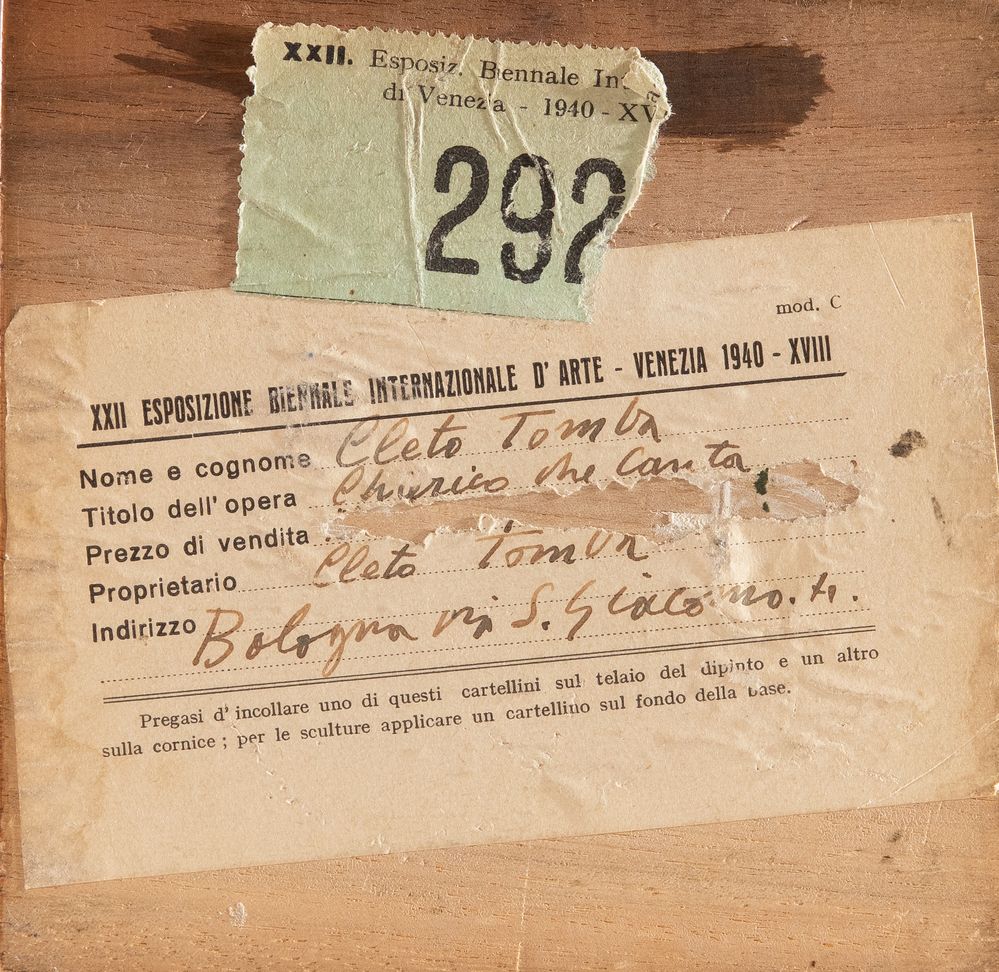 XXII. Esposiz. Biennale In
di Venezia - 1940 - XV
292
mod. C
XXII ESPOSIZIONE BIENNALE INTERNAZIONALE D' ARTE - VENEZIA 1940 - XVIII
Nome e cognome Cleto Tomba
Titolo dell' opera Chierico che canta
Prezzo di vendita
Proprietario Cleto Tomba
Indirizzo Bologna via S. Giacomo.
Pregasi d' incollare uno di questi cartellini sul telaio del dipinto e un altro
sulla cornice ; per le sculture applicare un cartellino sul fondo della base.